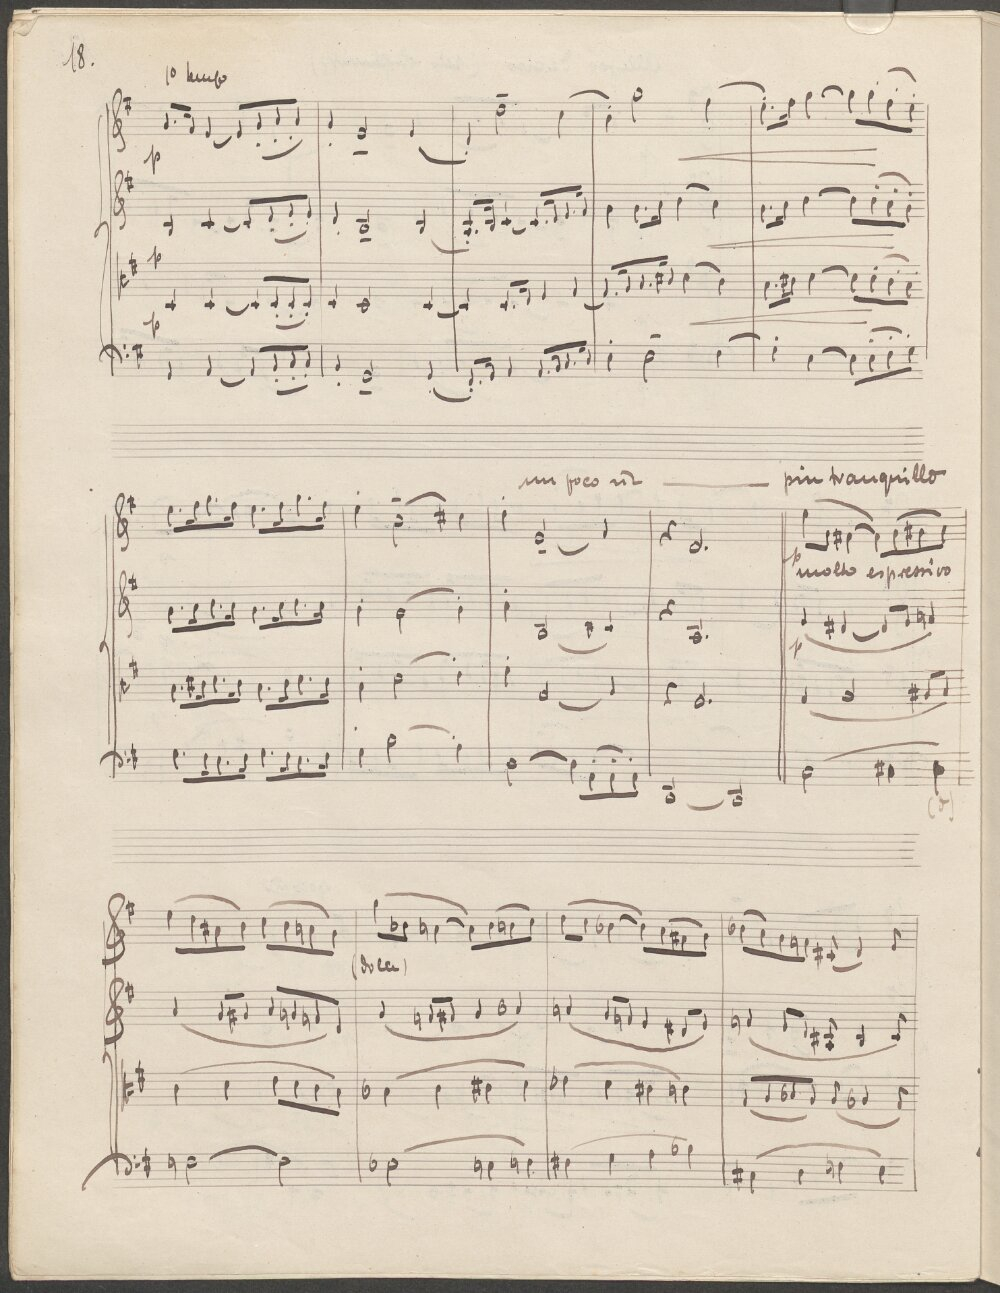 18.
1º tempo
p
p
p
un poco rit
più tranquillo
p
molto espressivo
p
(dolce)